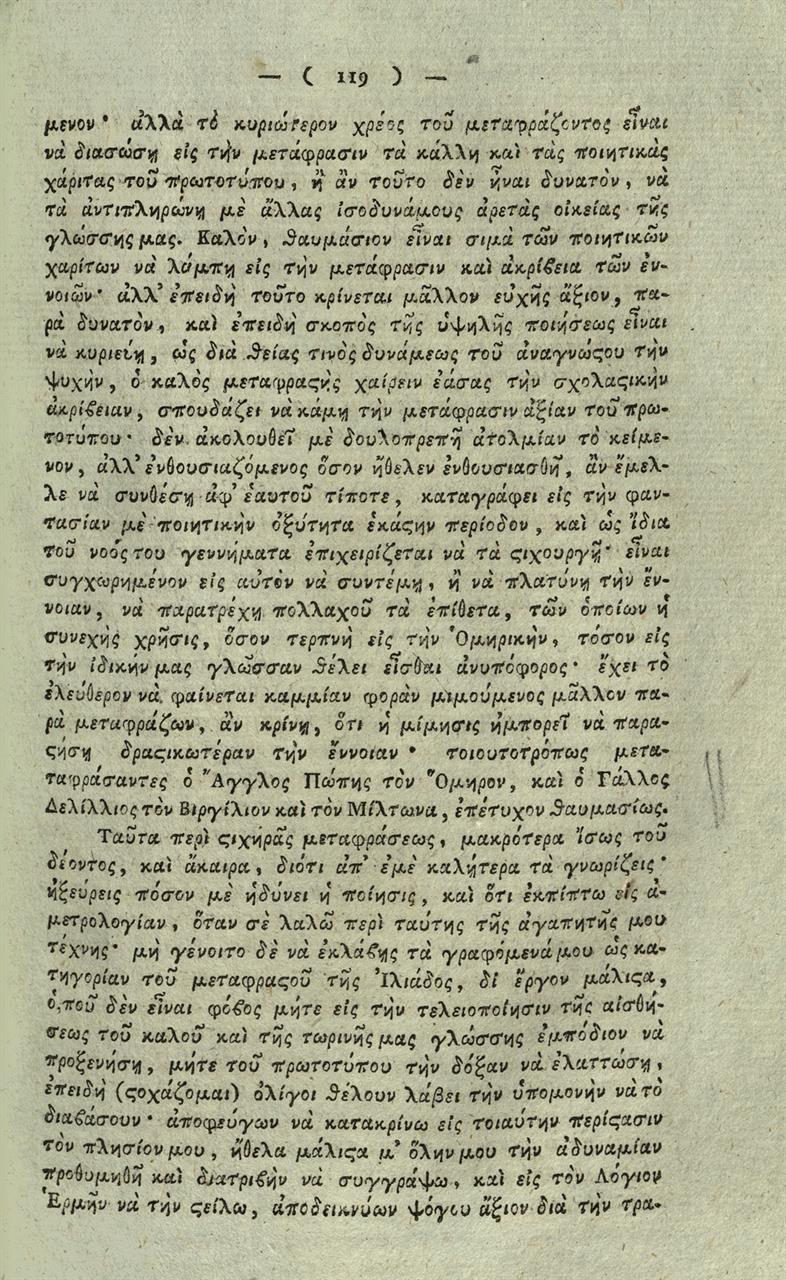 — ( 119 ) —
μενον· ἀλλὰ τὸ κυριώτερον χρέος τοῦ μεταφράζοντος εἶναι
νὰ διασώσῃ εἰς τὴν μετάφρασιν τὰ κάλλη καὶ τὰς ποιητικὰς
χάριτας τοῦ πρωτοτύπου, ἢ ἂν τοῦτο δὲν ἦναι δυνατὸν, νὰ
τὰ ἀντιπληρώνῃ μὲ ἄλλας ἰσοδυνάμους ἀρετὰς οἰκείας τῆς
γλώσσης μας. Καλὸν, θαυμάσιον εἶναι σιμὰ τῶν ποιητικῶν
χαρίτων νὰ λάμπῃ εἰς τὴν μετάφρασιν καὶ ἀκρίϐεια τῶν ἐν-
νοιῶν· ἀλλ' ἐπειδὴ τοῦτο κρίνεται μᾶλλον εὐχῆς ἄξιον, πα-
ρὰ δυνατὸν, καὶ ἐπειδὴ σκοπὸς τῆς ὑψηλῆς ποιήσεως εἶναι
νὰ κυριεύῃ, ὡς διὰ θείας τινὸς δυνάμεως τοῦ ἀναγνώϛου τὴν
ψυχὴν, ὁ καλὸς μεταφραϛὴς χαίρειν ἐάσας τὴν σχολαϛικὴν
ἀκρίϐειαν, σπουδάζει νὰ κάμῃ τὴν μετάφρασιν ἀξίαν τοῦ πρω-
τοτύπου· δὲν ἀκολουθεῖ μὲ δουλοπρεπῆ ἀτολμίαν τὸ κείμε-
νον, ἀλλ' ἐνθουσιαζόμενος ὅσον ἤθελεν ἐνθουσιασθῆ, ἂν ἔμελ-
λε νὰ συνθέσῃ ἀφ' ἑαυτοῦ τίποτε, καταγράφει εἰς τὴν φαν-
τασίαν μὲ ποιητικὴν ὀξύτητα ἑκάϛην περίοδον, καὶ ὡς ἴδια
τοῦ νοός του γεννήματα ἐπιχειρίζεται νὰ τὰ ϛιχουργῇ· εἶναι
συγχωρημένον εἰς αὐτὸν νὰ συντέμῃ, ἢ νὰ πλατύνῃ τὴν ἔν-
νοιαν, νὰ παρατρέχῃ πολλαχοῦ τὰ ἐπίθετα, τῶν ὁποίων ἡ
συνεχὴς χρῆσις, ὅσον τερπνὴ εἰς τὴν Ὁμηρικὴν, τόσον εἰς
τὴν ἰδικήν μας γλῶσσαν θέλει εἶσθαι ἀνυπόφορος· ἔχει τὸ
ἐλεύθερον νὰ φαίνεται καμμίαν φορὰν μιμούμενος μᾶλλον πα-
ρὰ μεταφράζων, ἂν κρίνῃ, ὅτι ἡ μίμησις ἠμπορεῖ νὰ παρα-
ϛήσῃ δραϛικωτέραν τὴν ἔννοιαν· τοιουτοτρόπως μετα-
ταφράσαντες ὁ Ἄγγλος Πώπης τὸν Ὅμηρον, καὶ ὁ Γάλλος
Δελίλλιος τὸν Βιργίλιον καὶ τὸν Μίλτωνα, ἐπέτυχον θαυμασίως.
Ταῦτα περὶ ϛιχηρᾶς μεταφράσεως, μακρότερα ἴσως τοῦ
δέοντος, καὶ ἄκαιρα, διότι ἀπ' ἐμὲ καλήτερα τὰ γνωρίζεις·
ἠξεύρεις πόσον μὲ ἡδύνει ἡ ποίησις, καὶ ὅτι ἐκπίπτω εἰς ἀ-
μετρολογίαν, ὅταν σὲ λαλῶ περὶ ταύτης τῆς ἀγαπητῆς μου
τέχνης· μὴ γένοιτο δὲ νὰ ἐκλάϐῃς τὰ γραφόμενά μου ὡς κα-
τηγορίαν τοῦ μεταφραϛοῦ τῆς Ἰλιάδος, δι' ἔργον μάλιϛα,
ὁποῦ δὲν εἶναι φόϐος μήτε εἰς τὴν τελειοποίησιν τῆς αἰσθή-
σεως τοῦ καλοῦ καὶ τῆς τωρινῆς μας γλώσσης ἐμπόδιον νὰ
προξενήσῃ, μήτε τοῦ πρωτοτύπου τὴν δόξαν νὰ ἐλαττώσῃ,
ἐπειδὴ (ϛοχάζομαι) ὀλίγοι θέλουν λάβει τὴν ὑπομονὴν νὰ τὸ
διαϐάσουν· ἀποφεύγων νὰ κατακρίνω εἰς τοιαύτην περίϛασιν
τὸν πλησίον μου, ἤθελα μάλιϛα μ' ὅλην μου τὴν ἀδυναμίαν
προθυμηθῆ καὶ διατριϐὴν νὰ συγγράψω, καὶ εἰς τὸν Λόγιον
Ἑρμῆν νὰ τὴν ϛείλω, ἀποδεικνύων ψόγου ἄξιον διὰ τὴν τρα-